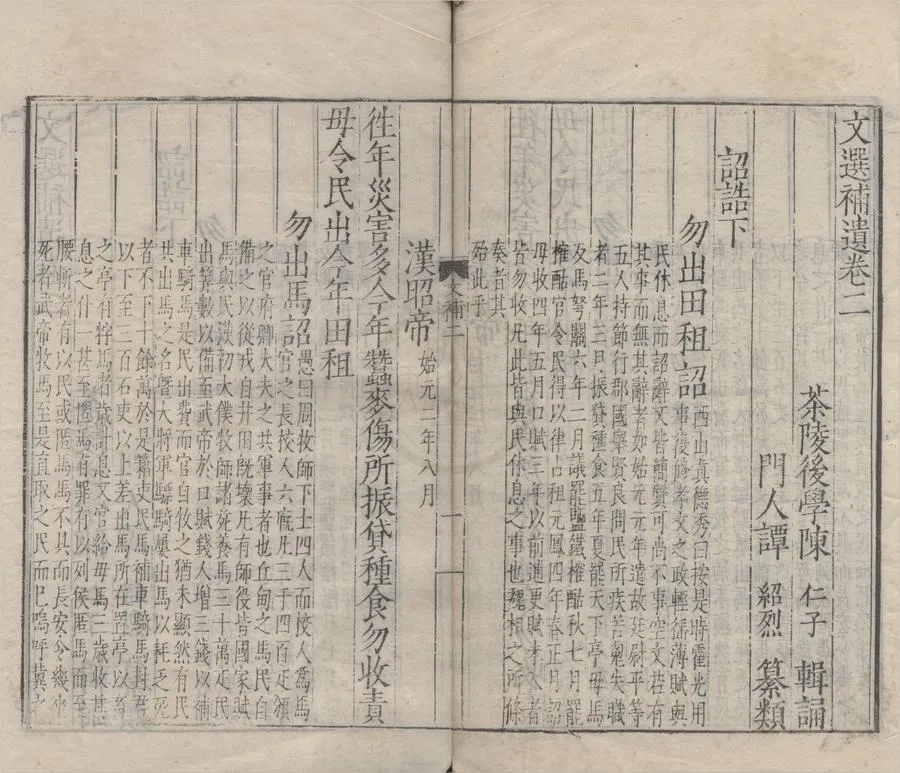 文選補遺卷二
茶陵後學陳 仁子 輯誦
門人譚 紹烈 纂類
詔誥下
勿出田租詔
西山真德秀曰按是時霍光用
事復修孝文之政輕徭薄賦與
民休息而詔辭又皆簡質可尚不事空文若有
其事而無其辭者如始元元年遣故廷尉平等
五人持節行郡國舉賢良問民所疾苦冤失職
者二年三月振貸種食五年夏罷天下亭母馬
及馬弩關六年二月議罷鹽鐵榷酤秋七月罷
榷酤官令民得以律占租元鳳四年春正月詔
毋收四年五月口賦三年以前逋更賦未入者
皆勿收凡此皆與民休息之事也魏相之所條
奏者其
始此乎
文補二
一
漢昭帝 始元二年八月
徃年災害多今年蠶麥傷所振貸種食勿收責
毋令民出今年田租
勿出馬詔
愚曰周牧師下士四人而校人爲馬
官之長校人六廐凡三千四百疋頒
之官府卿大夫之共軍事者也丘甸之馬民自
備之以從戎自井田既壞凡有師役皆國家賦
馬與民漢初太僕牧師諸苑養馬三十萬疋民
出筭數以備至武帝於口賦錢人增三錢以補
車騎馬是民出費而官自牧之猶未顯然有民
共出馬之名暨大將軍驃騎屢出馬以耗乏死
者不下十餘萬於是籍吏民馬補車騎馬封君
以下至三百石吏以上差出馬所在置亭以畜
之亭有牸馬者歲課息又官給母馬三歲收其
息之什一甚至匿馬有罪有以列侯匿馬而至
腰斬者有以民或匿馬馬不具而長安令幾坐
死者武帝牧馬至是直取之民而已嗚呼冀之